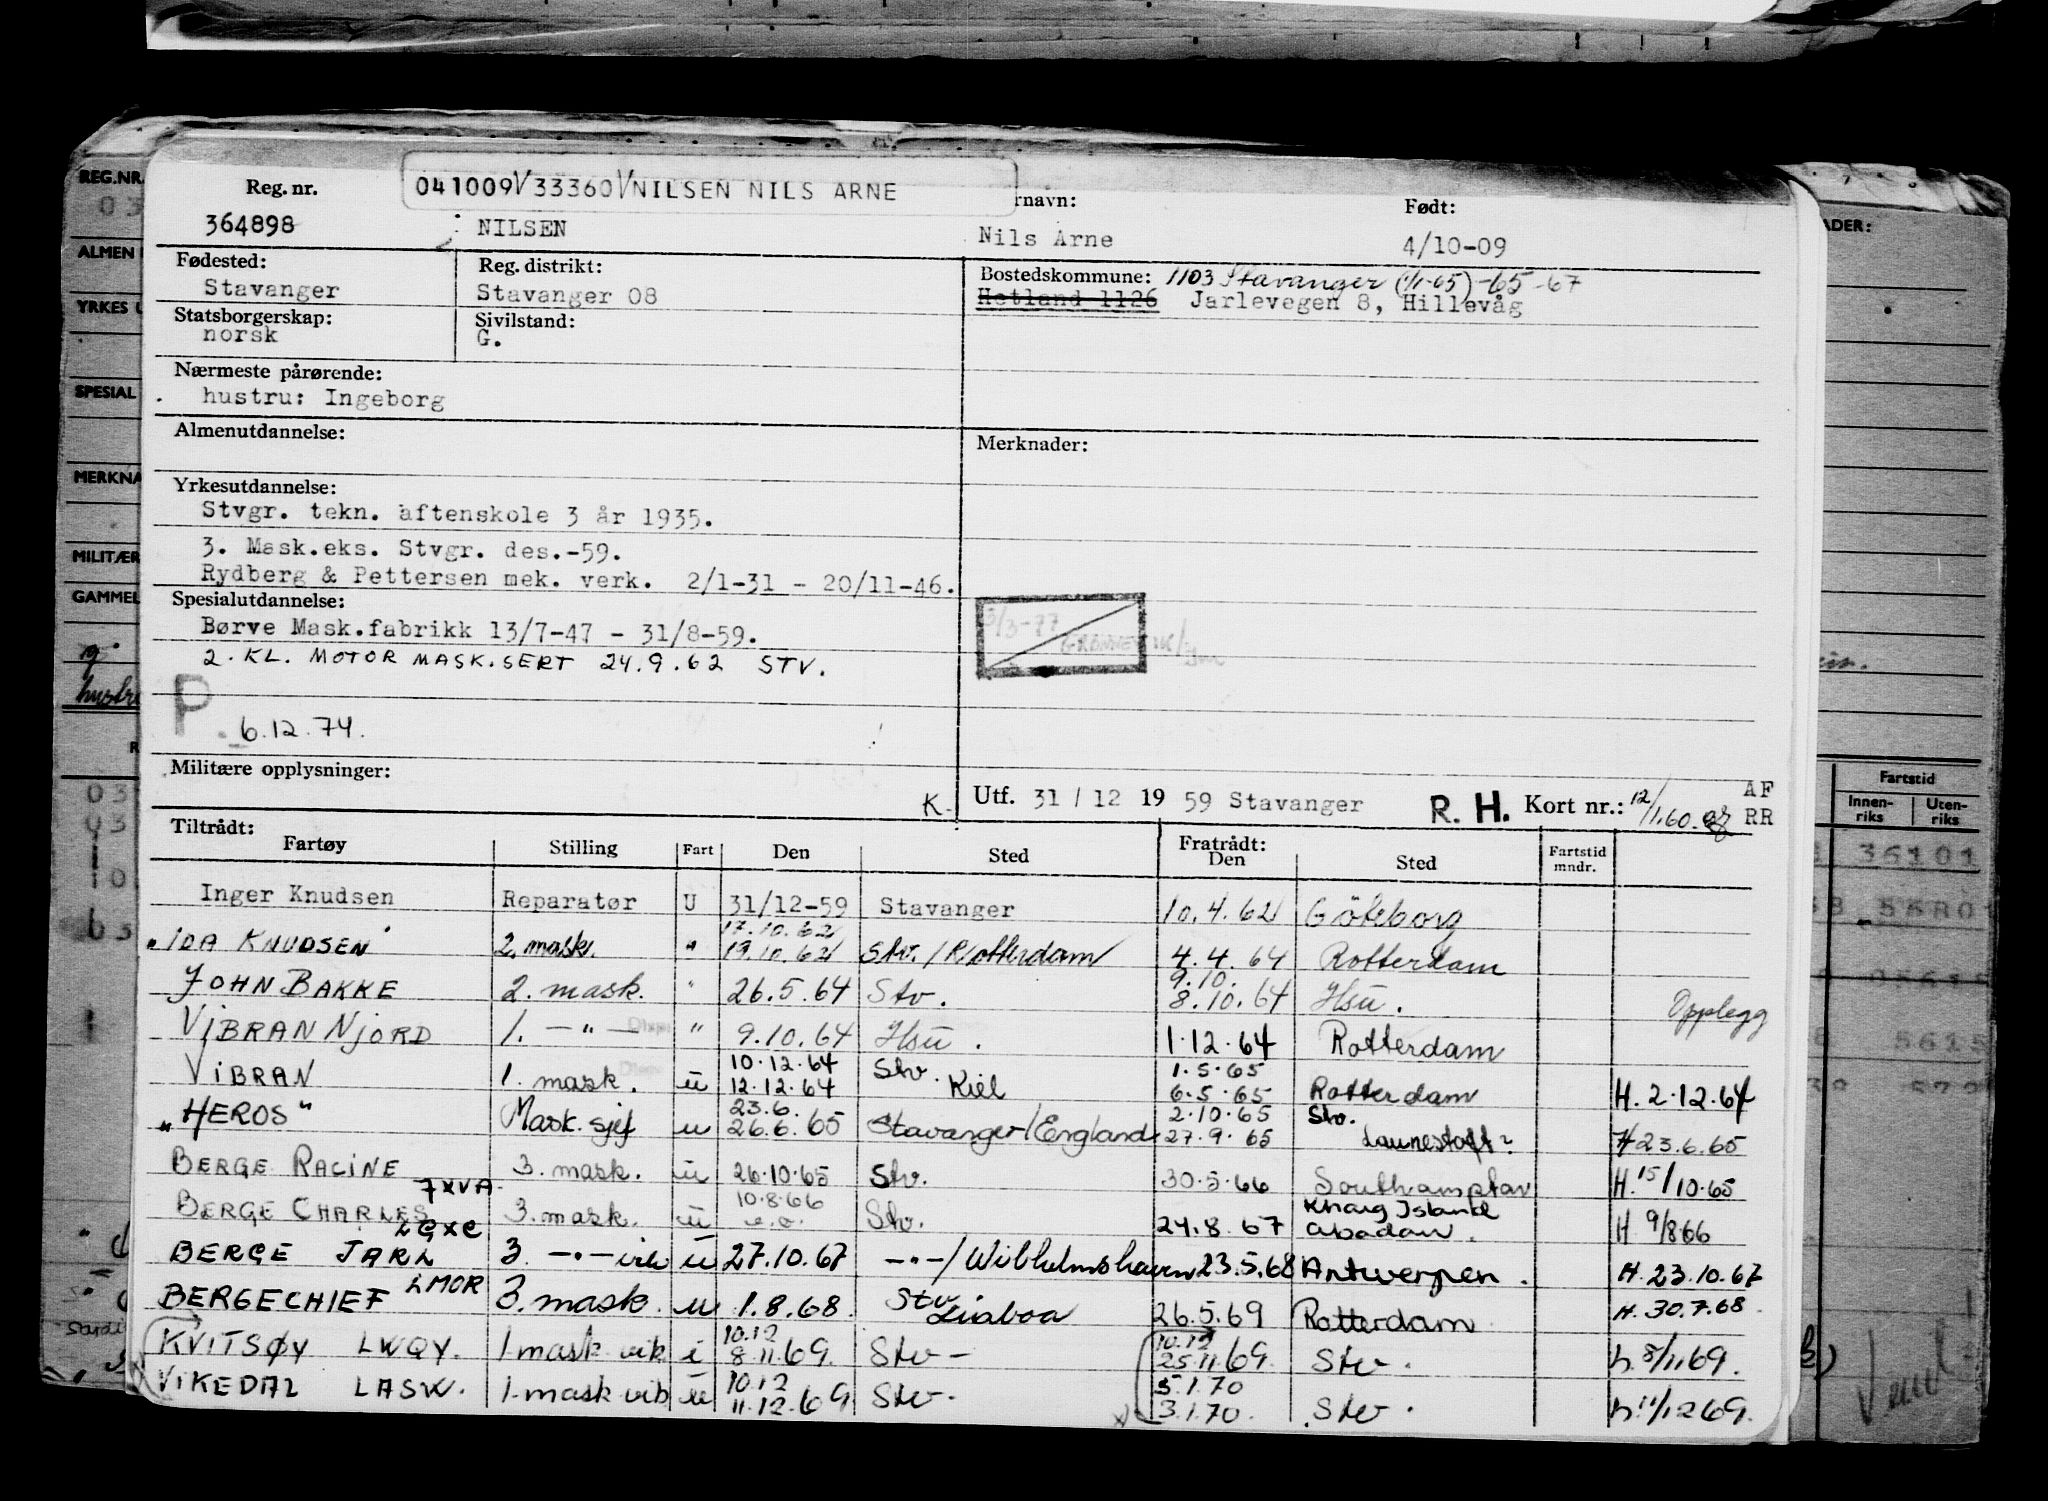 041009 33360 NILSEN NILS ARNE
Reg. nr. rnavn: Født:
364898 NILSEN Nils Arne 4/10-09
Fødested: Reg. distrikt: Bostedskommune: 1103 Stavanger (1/1-65) -65-67
Stavanger Stavanger 08 Hetland 1126 Jarlevegen 8, Hillevåg
Statsborgerskap: Sivilstand:
norsk G.
Nærmeste pårørende:
hustru: Ingeborg
Almenutdannelse: Merknader:
Yrkesutdannelse:
Stvgr. tekn. aftenskole 3 år 1935.
3. Mask.eks. Stvgr. des.-59.
Rydberg & Pettersen mek. verk. 2/1-31 - 20/11-46.
Spesialutdannelse:
Børve Mask.fabrikk 13/7-47 - 31/8-59.
2. KL. MOTOR MASK.SERT 24.9.62 STV.
P 6.12.74.
Militære opplysninger:
K. Utf. 31 / 12 19 59 Stavanger R. H. Kort nr.: 12/1.60. AF RR
Tiltrådt: Fratrådt:
Fartøy Stilling Fart Den Sted Den Sted Fartstid mndr.
Inger Knudsen Reparatør U 31/12-59 Stavanger 10.4.62 Göteborg
17.10.62
"IDA KNUDSEN" 2. mask. " 19.10.62 Stv. / Rotterdam 4.4.64 Rotterdam
9.10.
JOHN BAKKE 2. mask. " 26.5.64 Stv. 8.10.64 Hsu. Opplegg
VIBRAN NJORD 1. — " — " 9.10.64 Hsu. 1.12.64 Rotterdam
10.12.64 Stv. 1.5.65
VIBRAN 1. mask. u 12.12.64 Kiel 6.5.65 Rotterdam H. 2.12.64
23.6. 2.10.65 Stv.
"HEROS" Mask.sjef u 26.6.65 Stavanger/England 27.9.65 H 23.6.65
BERGE RACINE 3. mask. u 26.10.65 Stv. 30.5.66 Southampton H. 15/10.65
7XVA. 10.8.66 Kharg Island
BERGE CHARLES 3. mask. u Stv. 24.8.67 Abadan. H 9/866
LGXC
BERGE JARL 3. — " — vik u 27.10.67 — " — / Wilhelmshaven 23.5.68 Antwerpen. H. 23.10.67
LMOR Stv
BERGECHIEF 3. mask. u 1.8.68. Lisboa 26.5.69 Rotterdam H. 30.7.68.
10.12 10.12
KVITSØY LWQY. 1 mask vik i 8.11.69. Stv - 25.11.69. Stv. h. 8/11 69.
10.12 5.1.70
VIKEDAL LASW. 1. mask vik u 11.12.69 Stv. 3.1.70. Stv. h. 11/12 69.
REG.NR.
ALMEN
YRKES U
SPESIAL
MERKNA
MILITÆR
GAMMEL
ADER:
Fartstid
Innen-riks Uten-riks
36101